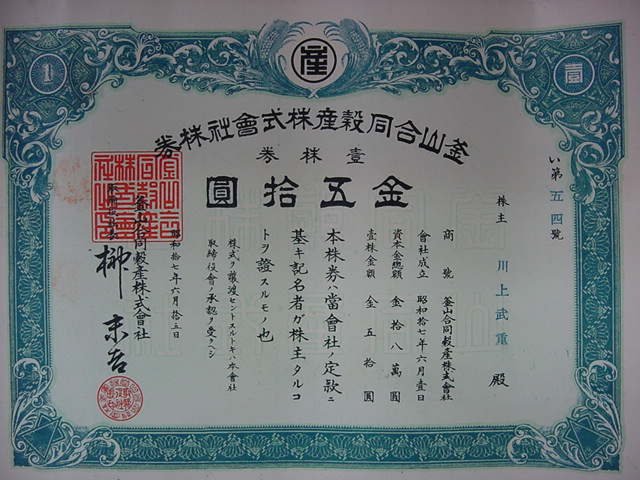 産
1
壹
釜山合同穀産株式會社株券
壹株券
金五拾圓
い第五四號
株主 川上武重 殿
商號 釜山合同穀産株式會社
會社成立 昭和拾七年六月壹日
資本金總額 金拾八萬圓
壹株金額 金五拾圓
本株券ハ當會社ノ定款ニ
基キ記名者ガ株主タルコ
トヲ證スルモノ也
株式ヲ讓渡セントスルトキハ本會社
取締役會ノ承認ヲ受クベシ
昭和拾七年六月拾五日
釜山合同穀産株式會社